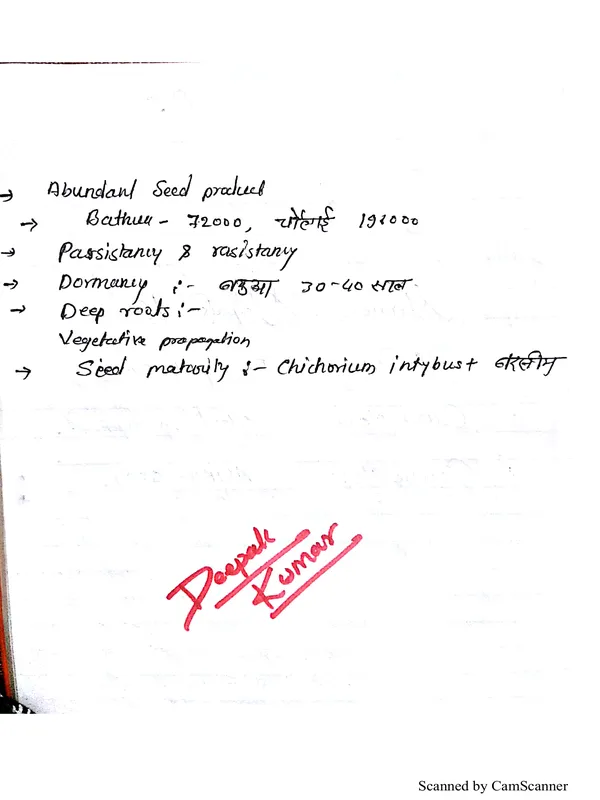 → Abundant Seed product
→ Bathua - 72000, चौलाई 198000
→ Parsistancy & rasistancy
→ Dormancy :- बथुआ 30-40 साल
→ Deep roots :-
Vegetative propagation
→ Seed maturity :- Chichorium intybus + बरसीम
Deepak
Kumar
Scanned by CamScanner